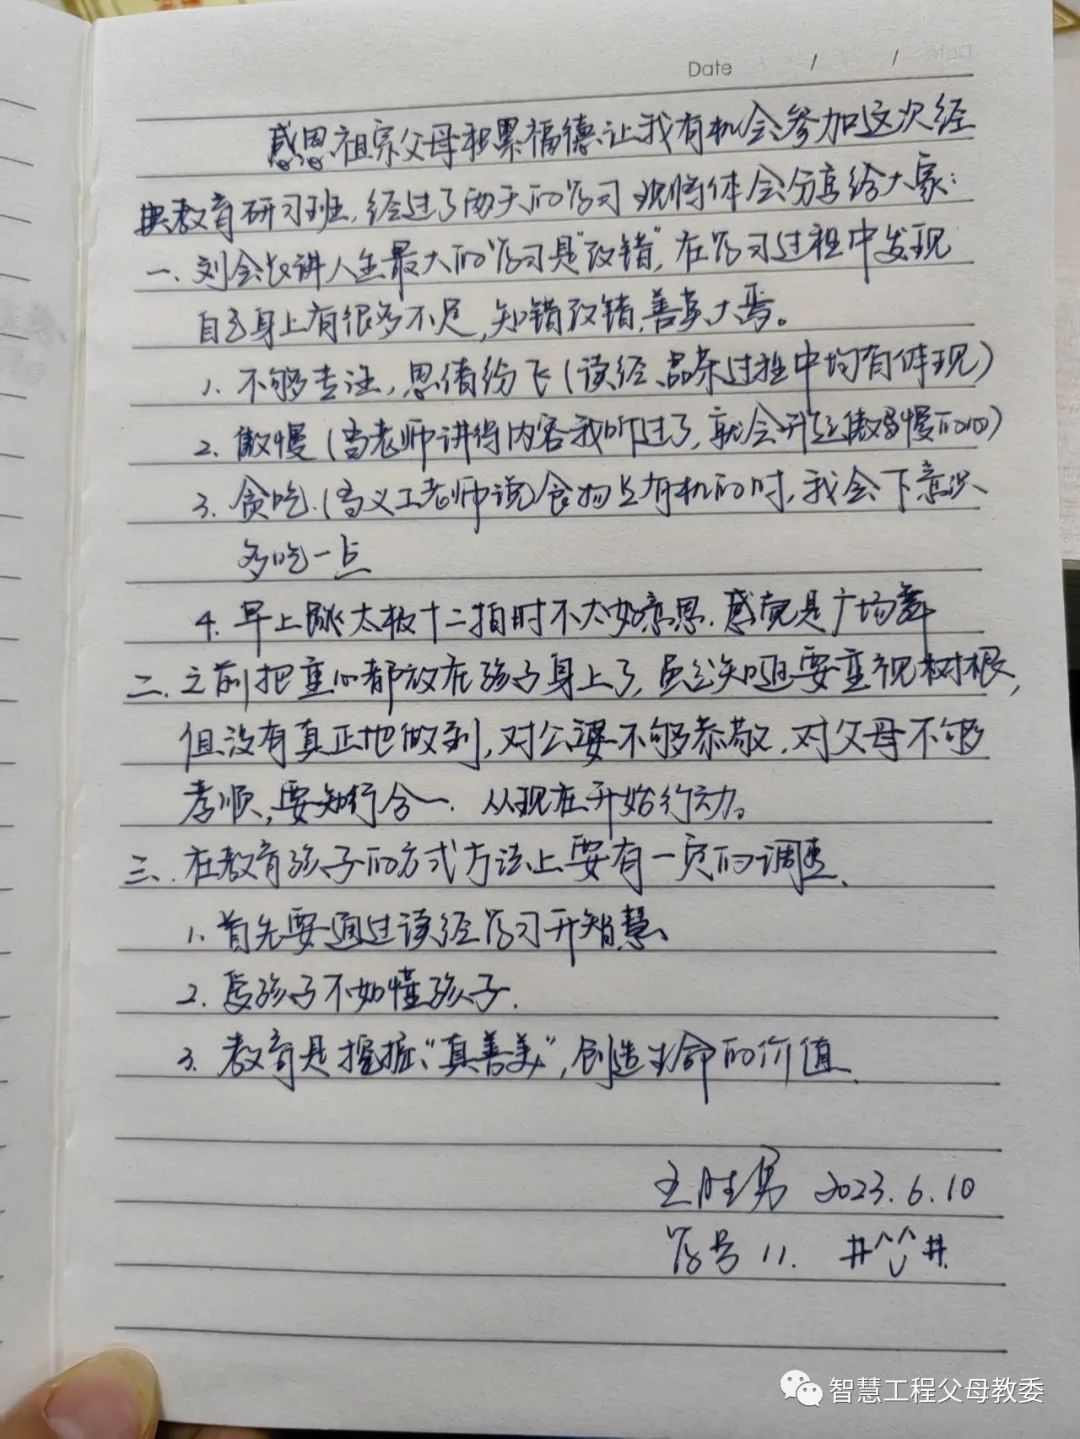 Date / /
感恩祖宗父母积累福德让我有机会参加这次经
典教育研习班,经过了两天的学习现将体会分享给大家:
一、刘会长讲人生最大的"学习是"改错",在学习过程中发现
自己身上有很多不足,知错改错,善莫大焉。
1. 不够专注,思绪纷飞(读经、品茶过程中均有体现)
2. 傲慢(高老师讲得内容我听过了,就会升起傲慢的心)
3. 贪吃.(高义工老师说)食物是有机的时,我会下意识
多吃一点
4. 早上跳太极十二拍时不太好意思.感觉是广场舞
二、之前把重心都放在孩子身上了,虽然知道要重视树根,
但没有真正地做到,对公婆不够恭敬.对父母不够
孝顺,要知行合一.从现在开始行动。
三、在教育孩子的方式方法上要有一定的调整.
1. 首先要通过读经学习开智慧、
2. 爱孩子不如懂孩子.
3. 教育是握掘"真善美",创造生命的价值.
王胜男 2023.6.10
学号 11. 井^^井
智慧工程父母教委